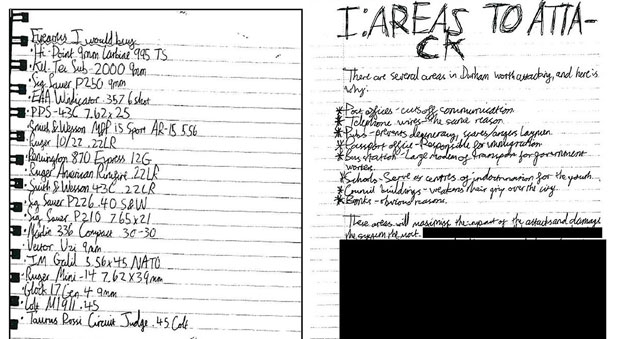 Firearms I would buy
· Hi-Point 9mm Carbine 995 TS
· Kel-Tec Sub-2000 9mm
· Sig Sauer P250 9mm
· EAA Windicator .357 6 shot
· PPS-43C 7.62x25
· Smith & Wesson M&P 15 Sport AR-15 5.56
· Ruger 10/22 .22LR
· Remington 870 Express 12G
· Ruger American Rimfire .22LR
· Smith & Wesson 43C .22LR
· Sig Sauer P226 .40 S&W
· Sig Sauer P210 7.65x21
· Marlin 336 Compact 30-30
· Vector Uzi 9mm
· IMI Galil 5.56x45 NATO
· Ruger Mini-14 7.62x39mm
· Glock 17 Gen 4 9mm
· Colt M1911 .45
· Taurus Rossi Circuit Judge .45 Colt
I: AREAS TO ATTA-
CK
There are several areas in Durham worth attacking, and here is
why:
* Post offices - cuts off communication
* Telephone wires - the same reason
* Pubs - prevents degeneracy, scares/angers laymen
* Passport office - Responsible for immigration
* Bus station - Large modem of transport for government
workers
* Schools - Serve as centres of indoctrination for the youth
* Council buildings - weakens their grip over the city
* Banks - obvious reasons.
These areas will maximise the impact of the attacks and damage
the system the most.